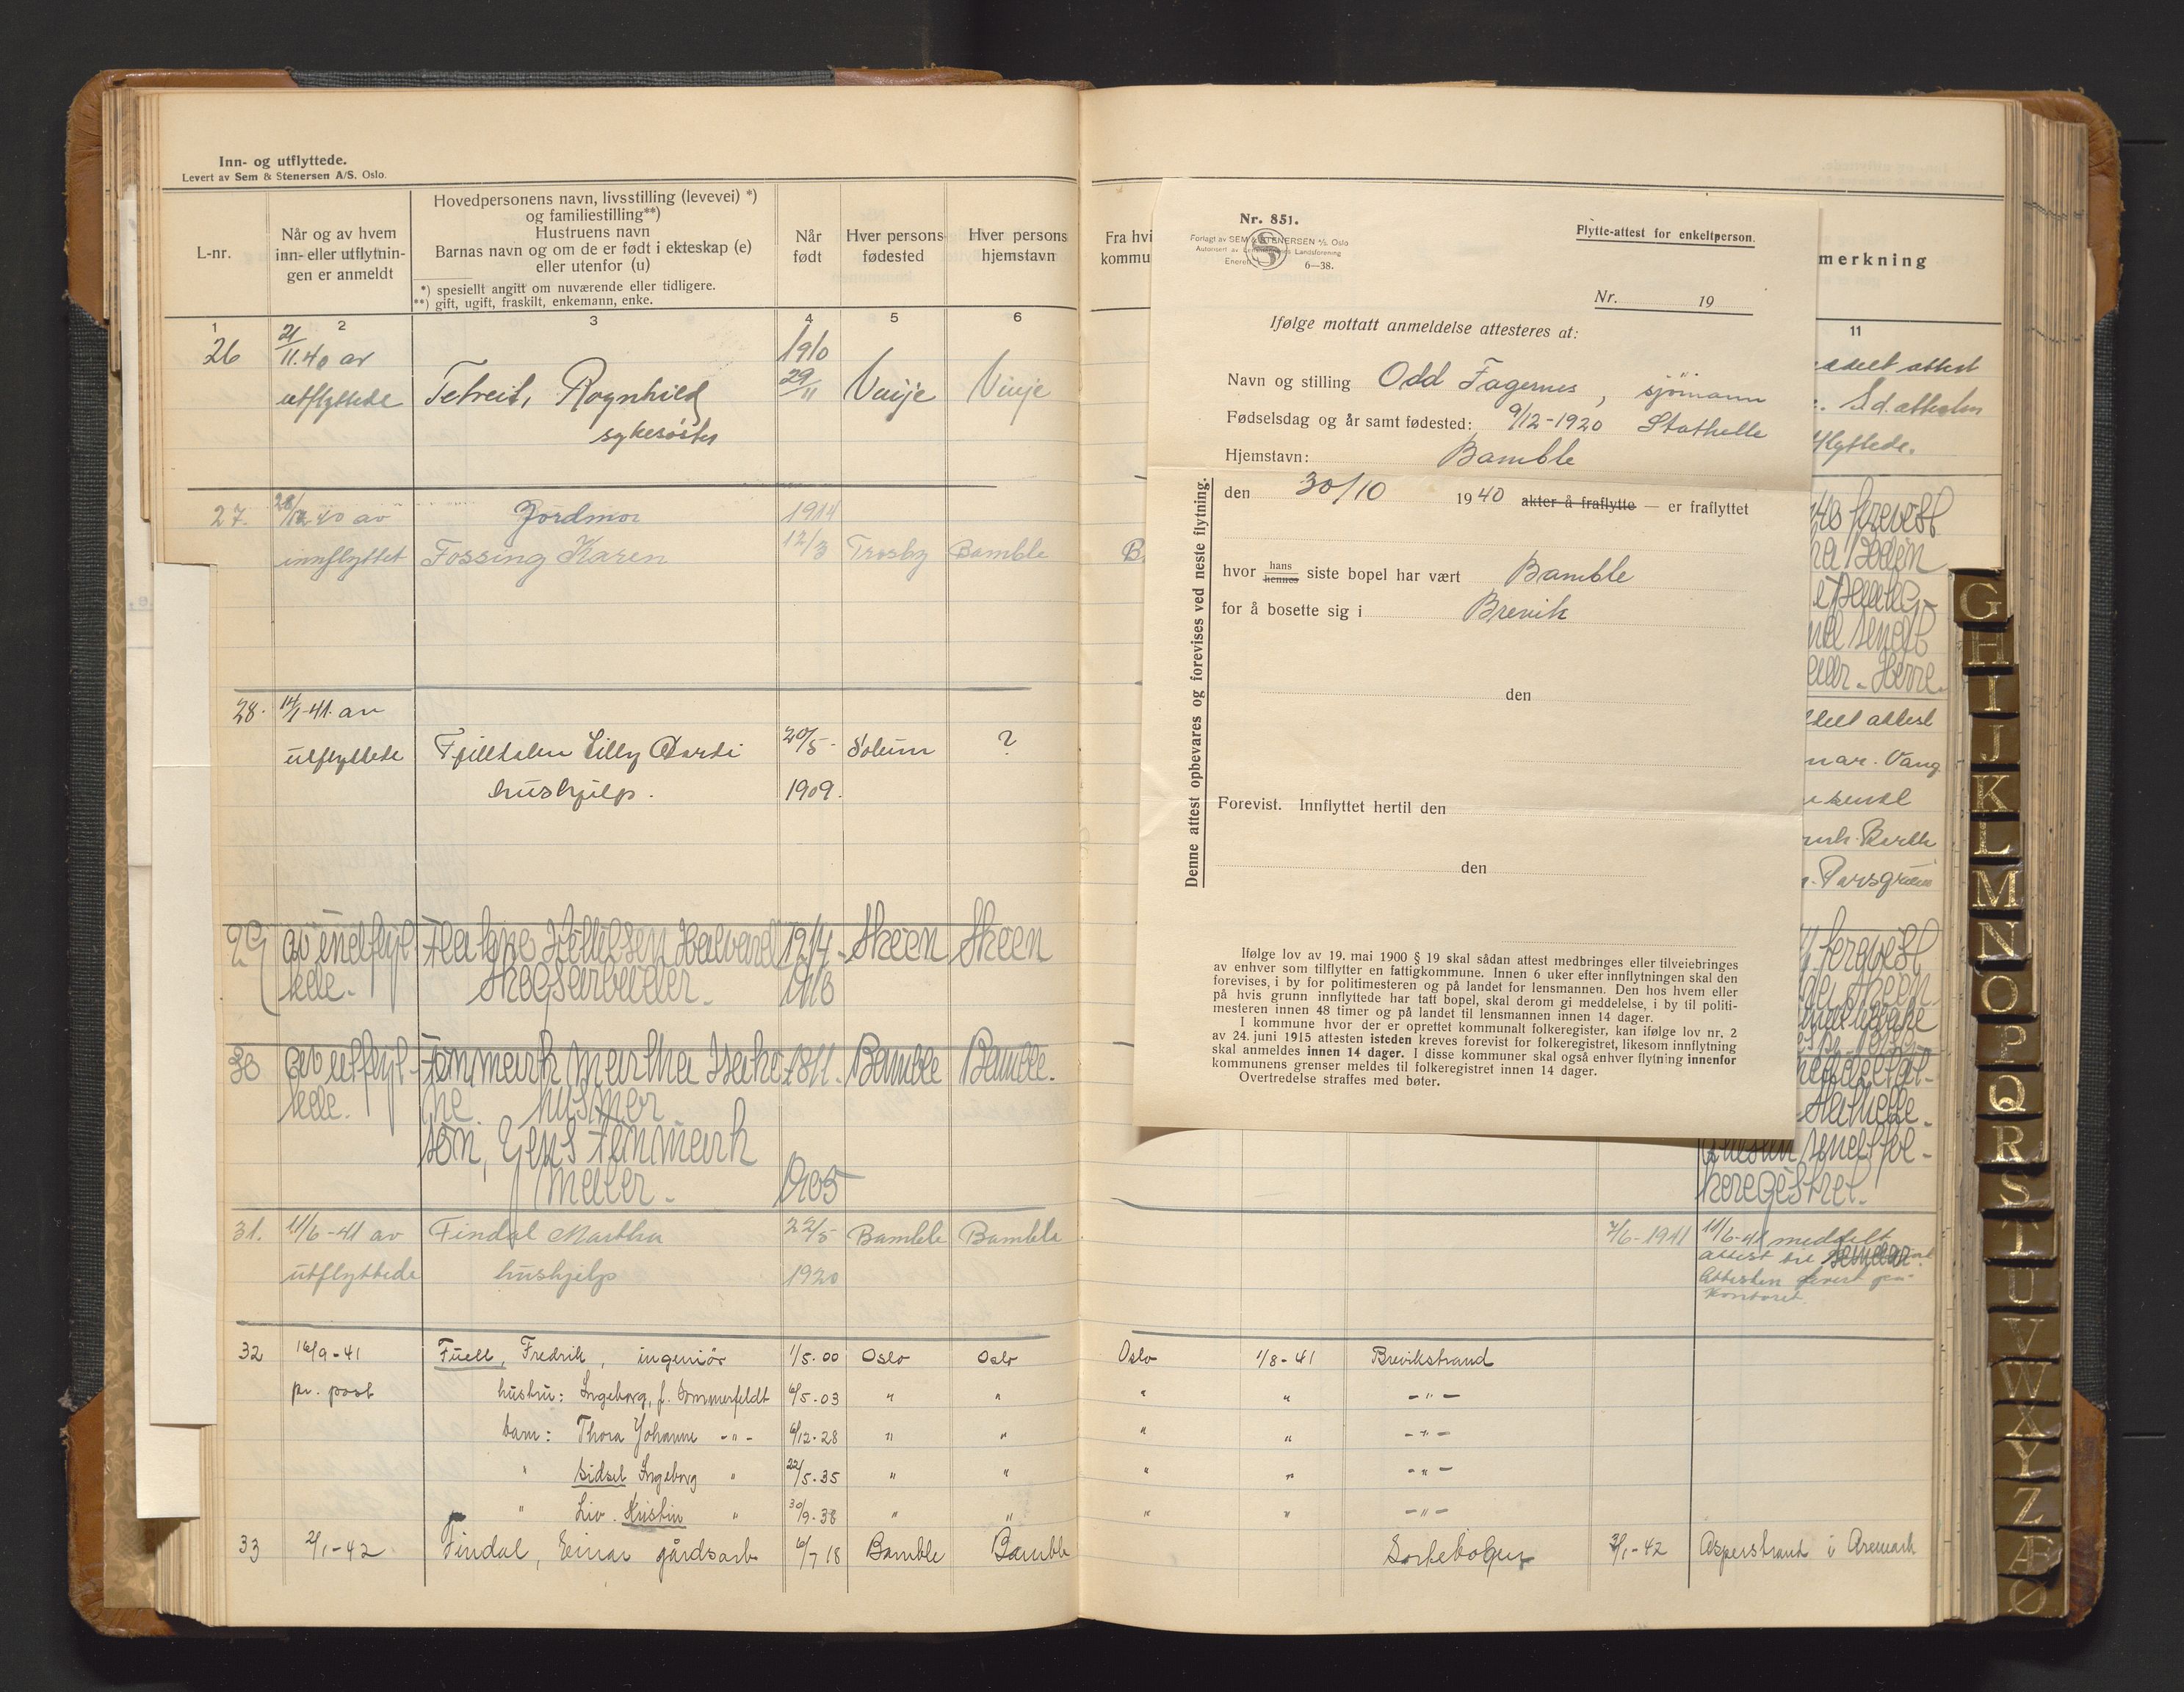 Inn- og utflyttede.
Levert av Sem & Stenersen A/S. Oslo.
L-nr.
Når og av hvem
inn- eller utflytnin-
gen er anmeldt
Hovedpersonens navn, livsstilling (levevei) *)
og familiestilling**)
Hustruens navn
Barnas navn og om de er født i ekteskap (e)
eller utenfor (u)
*) spesiellt angitt om nuværende eller tidligere.
**) gift, ugift, fraskilt, enkemann, enke.
Når
født
Hver persons
fødested
Hver persons
hjemstavn
1 2 3 4 5 6
26 21/11.40 av 1910
utflyttede Ragnhild 29/11 Vinje Vinje
sykesøster
27. 28/12 40 av Jordmor 1914
innflyttet Fossing Karen 12/3 Trosby Bamble
28. 14/1-41. av
utflyttede Lilly 20/5- Solum ?
hushjelp. 1909.
29 av innflyt Halvard 19/4- Skeen Skeen
tede. skogsarbeider. 1918
30 av utflyt- Finmark Martha 1811. Bamble Bamble.
tede. ne. husmor
søn, Jens Finmark
maler. 1905
31. 11/6-41 av Findal Martha 22/5 Bamble Bamble
utflyttede hushjelp 1920
32 16/9-41 Fuell, Fredrik, ingeniør 1/5.00 Oslo Oslo
pr. post hustru: Ingeborg, f. Sommerfeldt 6/5-03 " "
barn: Thora Johanne -"- 6/12-28 " "
" Sidsel Ingeborg " 22/5-35 " "
" Liv. Kristin " 30/9-38 " "
33 2/1-42 Findal, Einar gårdsarb 6/7 18 Bamble Bamble
Fra hvi
kommu
B.
Nr. 851.
Forlagt av SEM & STENERSEN A/S. Oslo
Autorisert av Lensmennenes Landsforening
Enerett 6—38.
Flytte-attest for enkeltperson.
Nr. 19
Ifølge mottatt anmeldelse attesteres at:
Navn og stilling Odd Fagernes, sjömann
Fødselsdag og år samt fødested: 9/12-1920 Stathelle
Hjemstavn: Bamble
den 30/10 1940 akter å fraflytte — er fraflyttet
hvor hans hennes siste bopel har vært Bamble
for å bosette sig i Brevik
den
Forevist. Innflyttet hertil den
den
Denne attest opbevares og forevises ved neste flytning.
Ifølge lov av 19. mai 1900 § 19 skal sådan attest medbringes eller tilveiebringes
av enhver som tilflytter en fattigkommune. Innen 6 uker efter innflytningen skal den
forevises, i by for politimesteren og på landet for lensmannen. Den hos hvem eller
på hvis grunn innflyttede har tatt bopel, skal derom gi meddelelse, i by til politi-
mesteren innen 48 timer og på landet til lensmannen innen 14 dager.
I kommune hvor der er oprettet kommunalt folkeregister, kan ifølge lov nr. 2
av 24. juni 1915 attesten isteden kreves forevist for folkeregistret, likesom innflytning
skal anmeldes innen 14 dager. I disse kommuner skal også enhver flytning innenfor
kommunens grenser meldes til folkeregistret innen 14 dager.
Overtredelse straffes med bøter.
merkning
11
attest
flyttede.
forevist
Herre.
attest
Vang
Porsgrunn
forevist
Skeen
Stathelle.
keregistret.
7/6-1941 11/6-41 meddelt
attest til
Attesten levert på
kontoret.
Oslo 1/8-41 Brevikstrand
" " -"-
" " -"-
" " -"-
" " -"-
2/1-42 Asperstrand i Aremark
G
H
I
J
K
L
M
N
O
P
Q
R
S
T
U
V
W
X
Y
Z
Æ
Ø